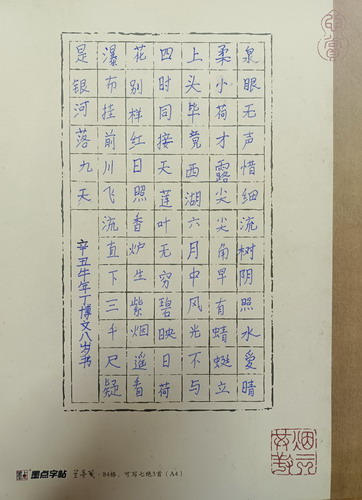 泉眼无声惜细流树阴照水爱晴
柔小荷才露尖尖角早有蜻蜓立
上头毕竟西湖六月中风光不与
四时同接天莲叶无穷碧映日荷
花别样红日照香炉生紫烟遥看
瀑布挂前川飞流直下三千尺疑
是银河落九天
辛丑牛年丁博文八岁书
墨点字帖 84格，可写七绝3首（A4）